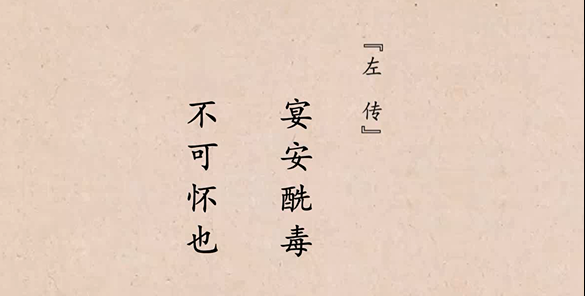 『左传』
宴安酰毒
不可怀也